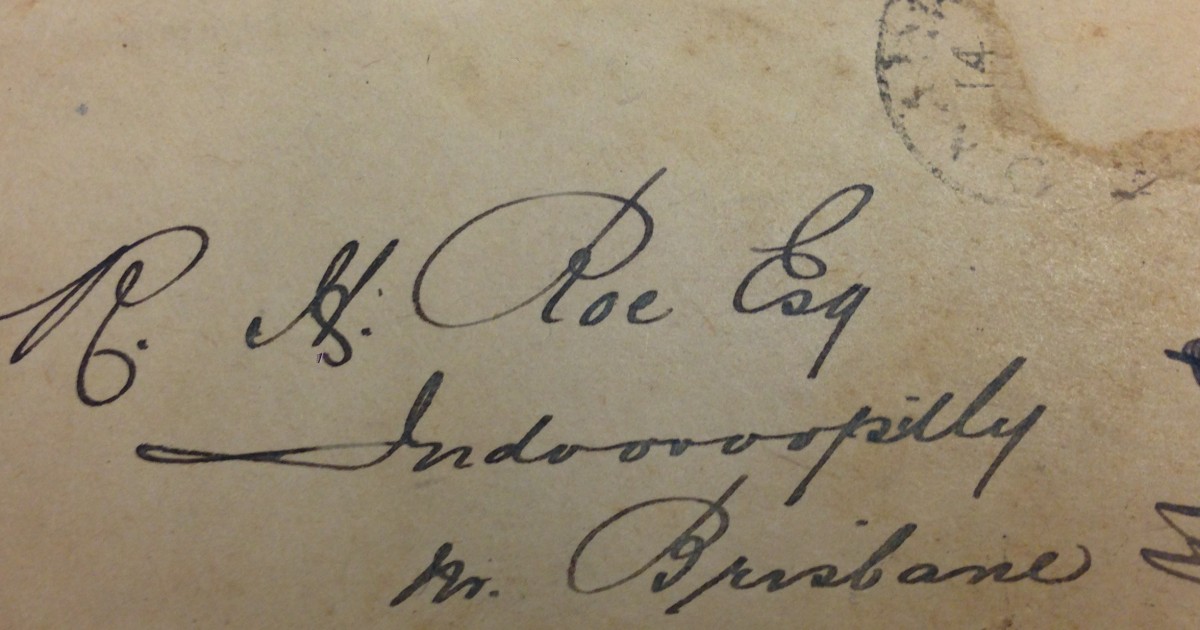 14
R. H. Roe Esq
Indooroopilly
Nr. Brisbane